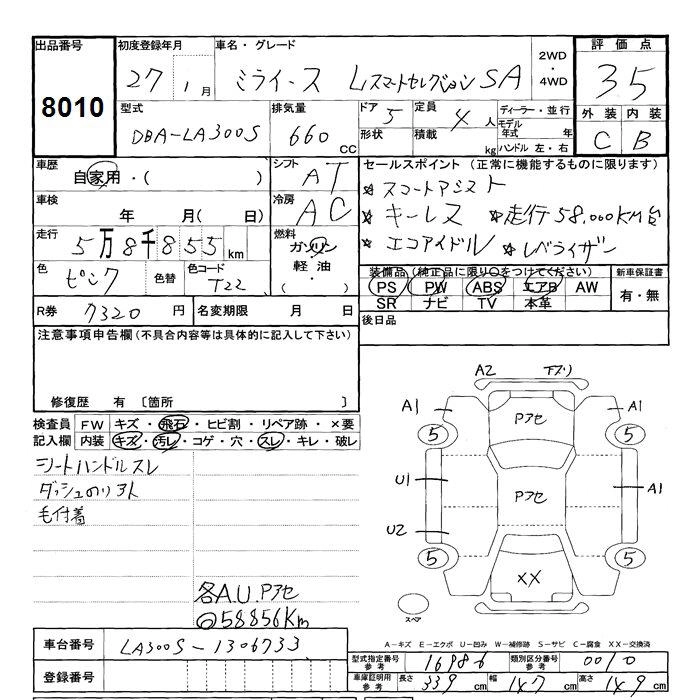 出品番号 8010
初度登録年月 27年 1月
車名・グレード ミライース Lスマートセレクション SA
2WD・4WD
評価点 35
外装 C 内装 B
型式 DBA-LA300S
排気量 660 CC
ドア 5 形状
定員 4人 積載 kg
ディーラー・並行 モデル年式 年
ハンドル 左・右
車歴 自家用・( )
シフト AT
車検 年 月( 日)
冷房 AC
走行 5万8千855km
燃料 ガソリン 軽油・( )
色 ピンク 色替
色コード T22
R券 7320円
名変期限 月 日
セールスポイント(正常に機能するものに限ります)
★スマートアシスト
★キーレス ★走行58,000KM台
★エコアイドル ★レベライザー
装備品(純正品に限り○をつけてください) 新車保証書
PS PW ABS エアB AW 有・無
SR ナビ TV 本革
後日品
注意事項申告欄(不具合内容等は具体的に記入して下さい)
修復歴 有 〔箇所 〕
検査員記入欄
FW キズ・飛石・ヒビ割・リペア跡・×要
内装 キズ・汚レ・コゲ・穴・スレ・キレ・破レ
シートハンドルスレ
ダッシュのリアト
毛付着
各A.U.Pアセ
◎58856Km
A2 下スリ
A1 Pアセ A1
5 5
U1 Pアセ A1
U2
5 XX 5
スペア
A-キズ E-エクボ U-凹み W-補修跡 S-サビ C-腐食 XX-交換済
車台番号 LA300S-1306733
登録番号
型式指定番号 参考 16986 類別区分番号 参考 0010
車庫証明用 参考 長さ 339cm 幅 147cm 高さ 149cm